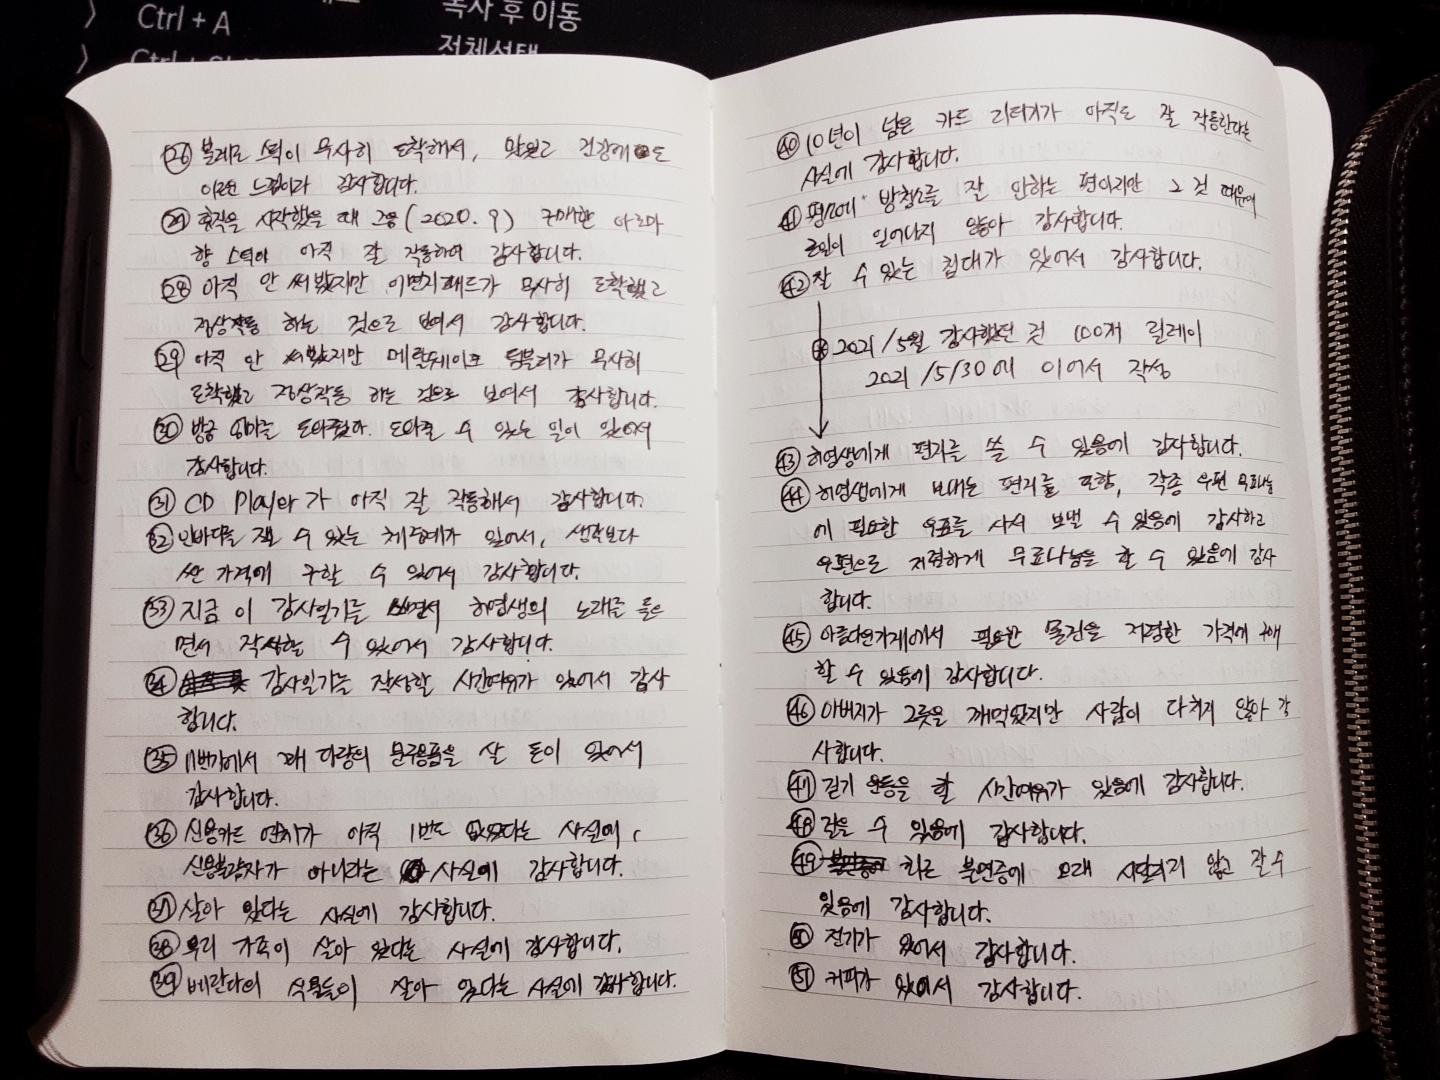 Ctrl + A
복사 후 이동
전체선택
Ctrl +
26 스틱이 무사히 도착해서, 맛있고 건강에도
이로운 느낌이라 감사합니다.
27 휴직을 시작했을 때 (2020. 9) 구매한 아로마
향 스틱이 아직 잘 작동하여 감사합니다.
28 아직 안 써봤지만 이면지패드가 무사히 도착했고
정상작동 하는 것으로 보여서 감사합니다.
29 아직 안 써봤지만 텀블러가 무사히
도착했고 정상작동 하는 것으로 보여서 감사합니다.
30 방금 엄마를 도와줬다. 도와줄 수 있는 일이 있어서
감사합니다.
31 CD Player가 아직 잘 작동해서 감사합니다.
32 인바디를 잴 수 있는 체중계가 있어서, 생각보다
싼 가격에 구할 수 있어서 감사합니다.
33 지금 이 감사일기를 쓰면서 허영생의 노래를 들으
면서 작성할 수 있어서 감사합니다.
34 감사일기를 작성할 시간여유가 있어서 감사
합니다.
35 11번가에서 꽤 다량의 문구용품을 살 돈이 있어서
감사합니다.
36 신용카드 연체가 아직 1번도 없었다는 사실에,
신용불량자가 아니라는 사실에 감사합니다.
37 살아 있다는 사실에 감사합니다.
38 우리 가족이 살아 있다는 사실에 감사합니다.
39 베란다의 식물들이 살아 있다는 사실에 감사합니다.
40 10년이 넘은 카드 리더기가 아직도 잘 작동한다는
사실에 감사합니다.
41 평소에 방청소를 잘 안하는 편이지만 그 것 때문에
일어나지 않아 감사합니다.
42 잘 수 있는 침대가 있어서 감사합니다.
2021/5월 감사했던 것 100개 릴레이
2021/5/30에 이어서 작성
43 허영생에게 편지를 쓸 수 있음에 감사합니다.
44 허영생에게 보내는 편지를 포함, 각종 우편 무료나눔
에 필요한 우표를 사서 보낼 수 있음에 감사하고
우편으로 저렴하게 무료나눔을 할 수 있음에 감사
합니다.
45 아름다운가게에서 필요한 물건을 저렴한 가격에 구매
할 수 있음에 감사합니다.
46 아버지가 그릇을 깨먹었지만 사람이 다치지 않아 감
사합니다.
47 걷기 운동을 할 시간여유가 있음에 감사합니다.
48 걸을 수 있음에 감사합니다.
49 하루 불면증에 오래 시달리지 않고 잘 수
있음에 감사합니다.
50 전기가 있어서 감사합니다.
51 커피가 있어서 감사합니다.